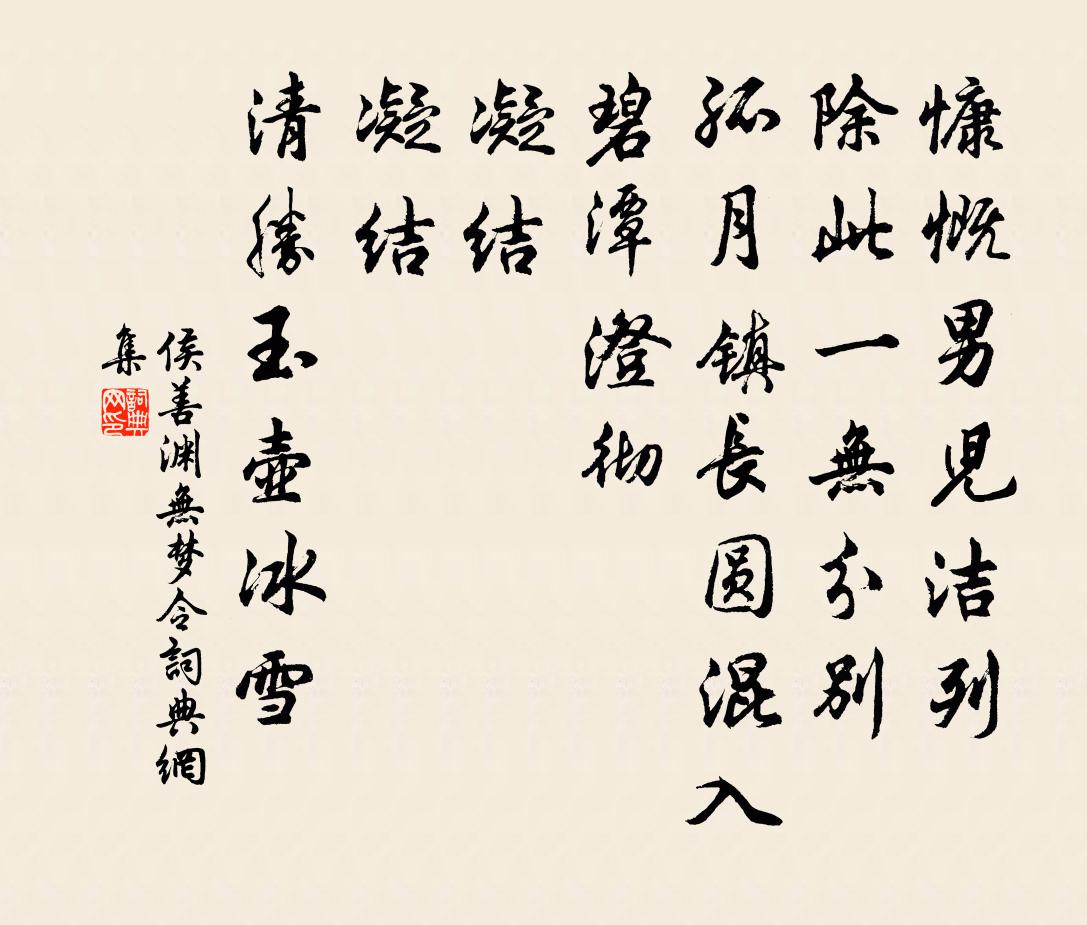 慷慨男児洁列
除此一無分别
孤月镇長圆混入
碧潭澄彻
凝结
凝结
清勝玉壶冰雪
侯善渊無梦令詞典網
集
詞典网印